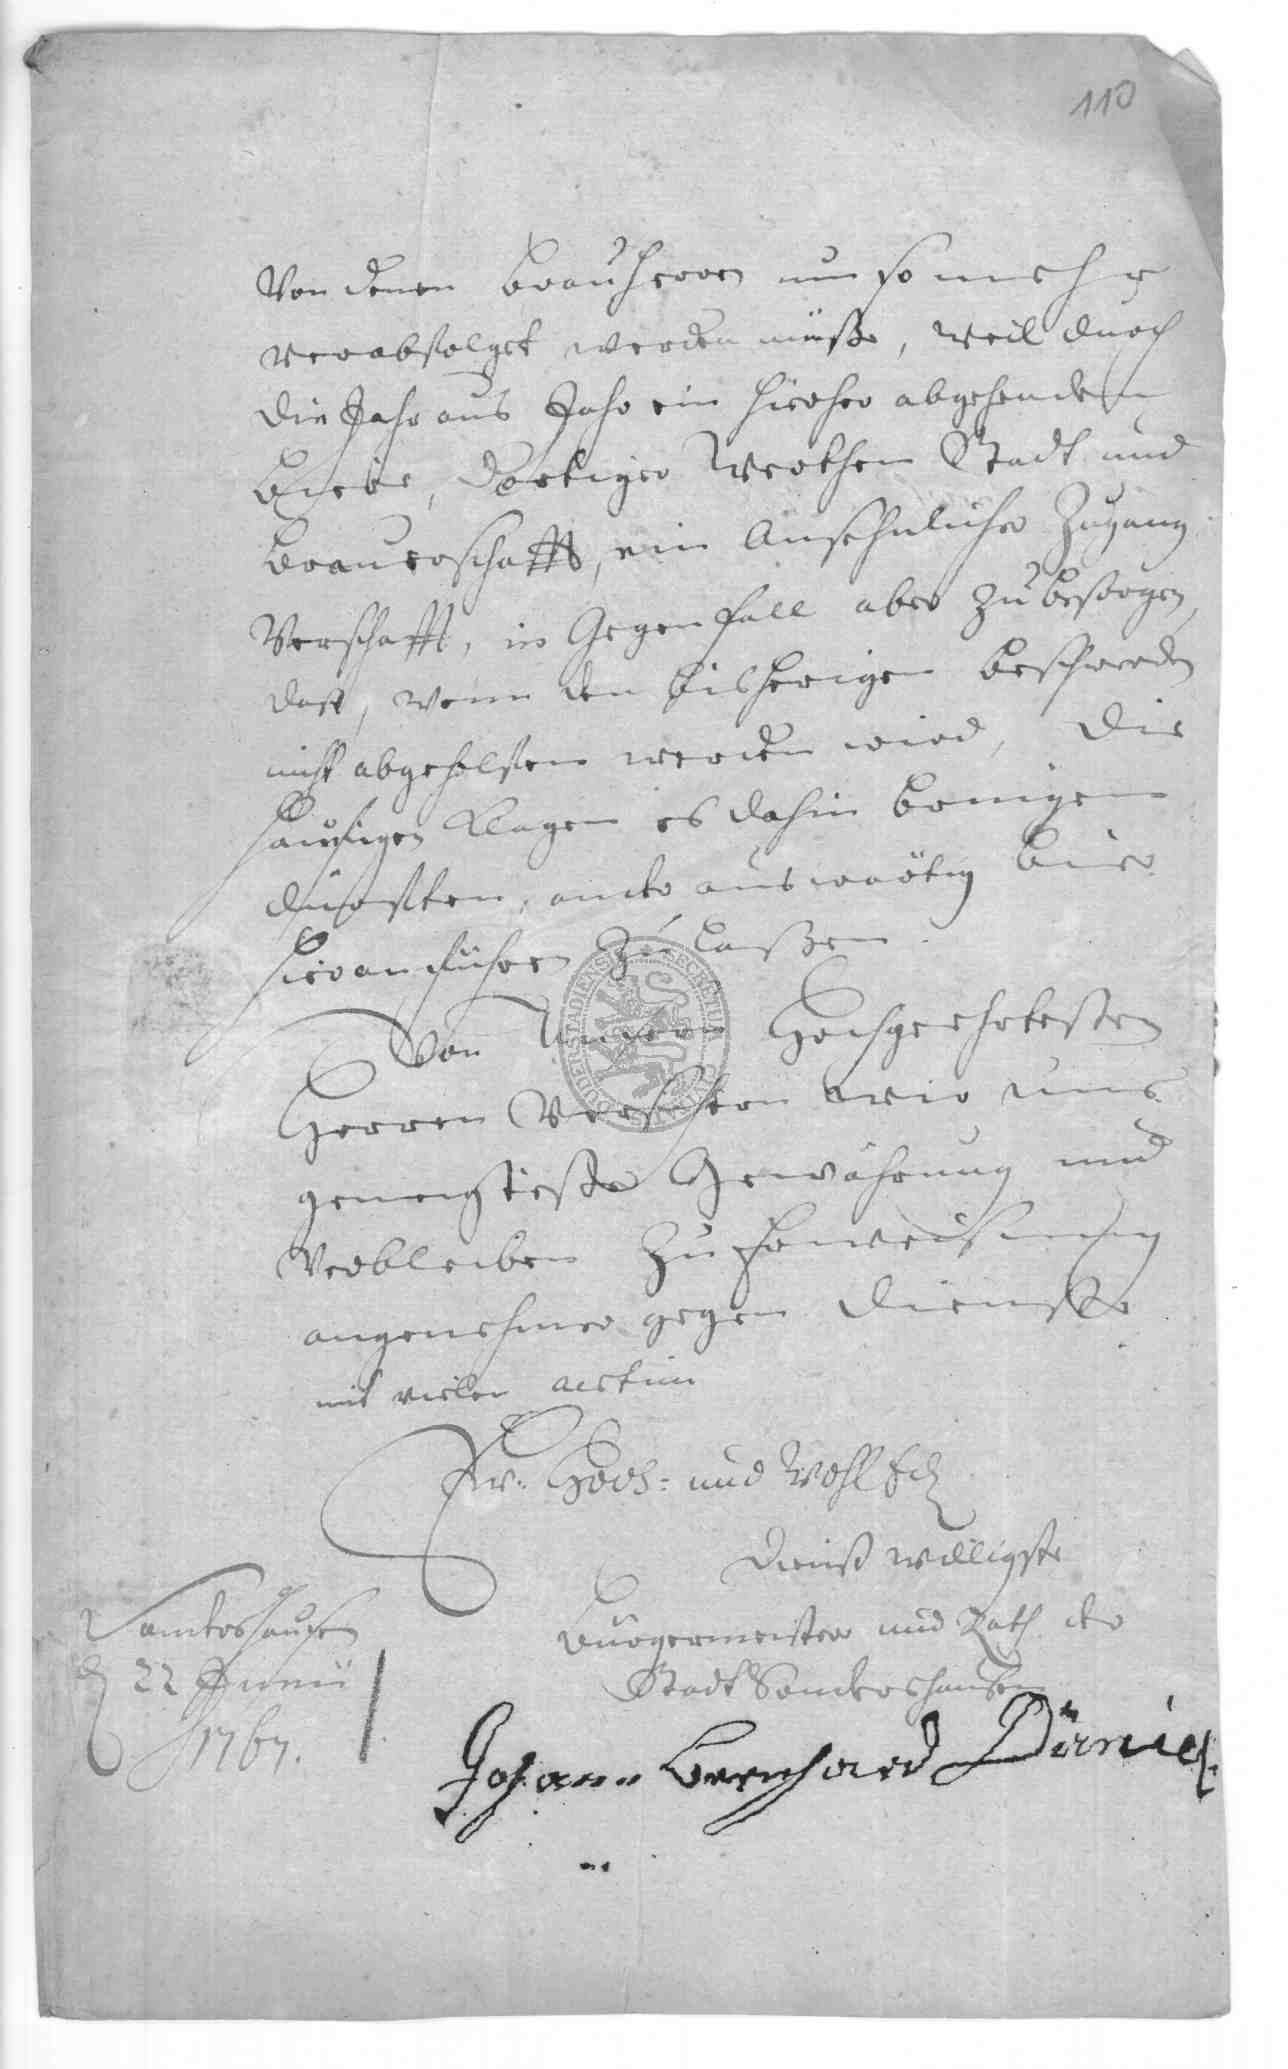 110
Von denen Brauherren um so mehr
verabfolget werden müße, weil durch
die Jahr aus Jahr ein hierher abgehenden
Biere, dortiger Werthen Stadt und
Brauerschafft, ein Ansehnlicher Zugang
Verschafft, in Gegenfall aber zu besorgen,
daß, wenn den bisherigen beschwerden
nicht abgeholfen werden wird, die
häuffigen Klagen es dahin bringen
dürfften, ander auswärtig Bier
hieranführen zu laßen.
Von Unsern Hochgeehrtesten
Herren Versichern wir uns
geneigtester Gewährung und
verbleiben zu Erweisung
angenehmer gegen Dienste
mit vielen aestim
Ew. Hoch- und WohlEdl
Dienst willigste
Bürgermeister und Rath der
Stadt Sondershausen
Sondershausen
d 22 Junii
1767.
Johann Bernhard
SECRETUM
DUDERSTADIENSIS